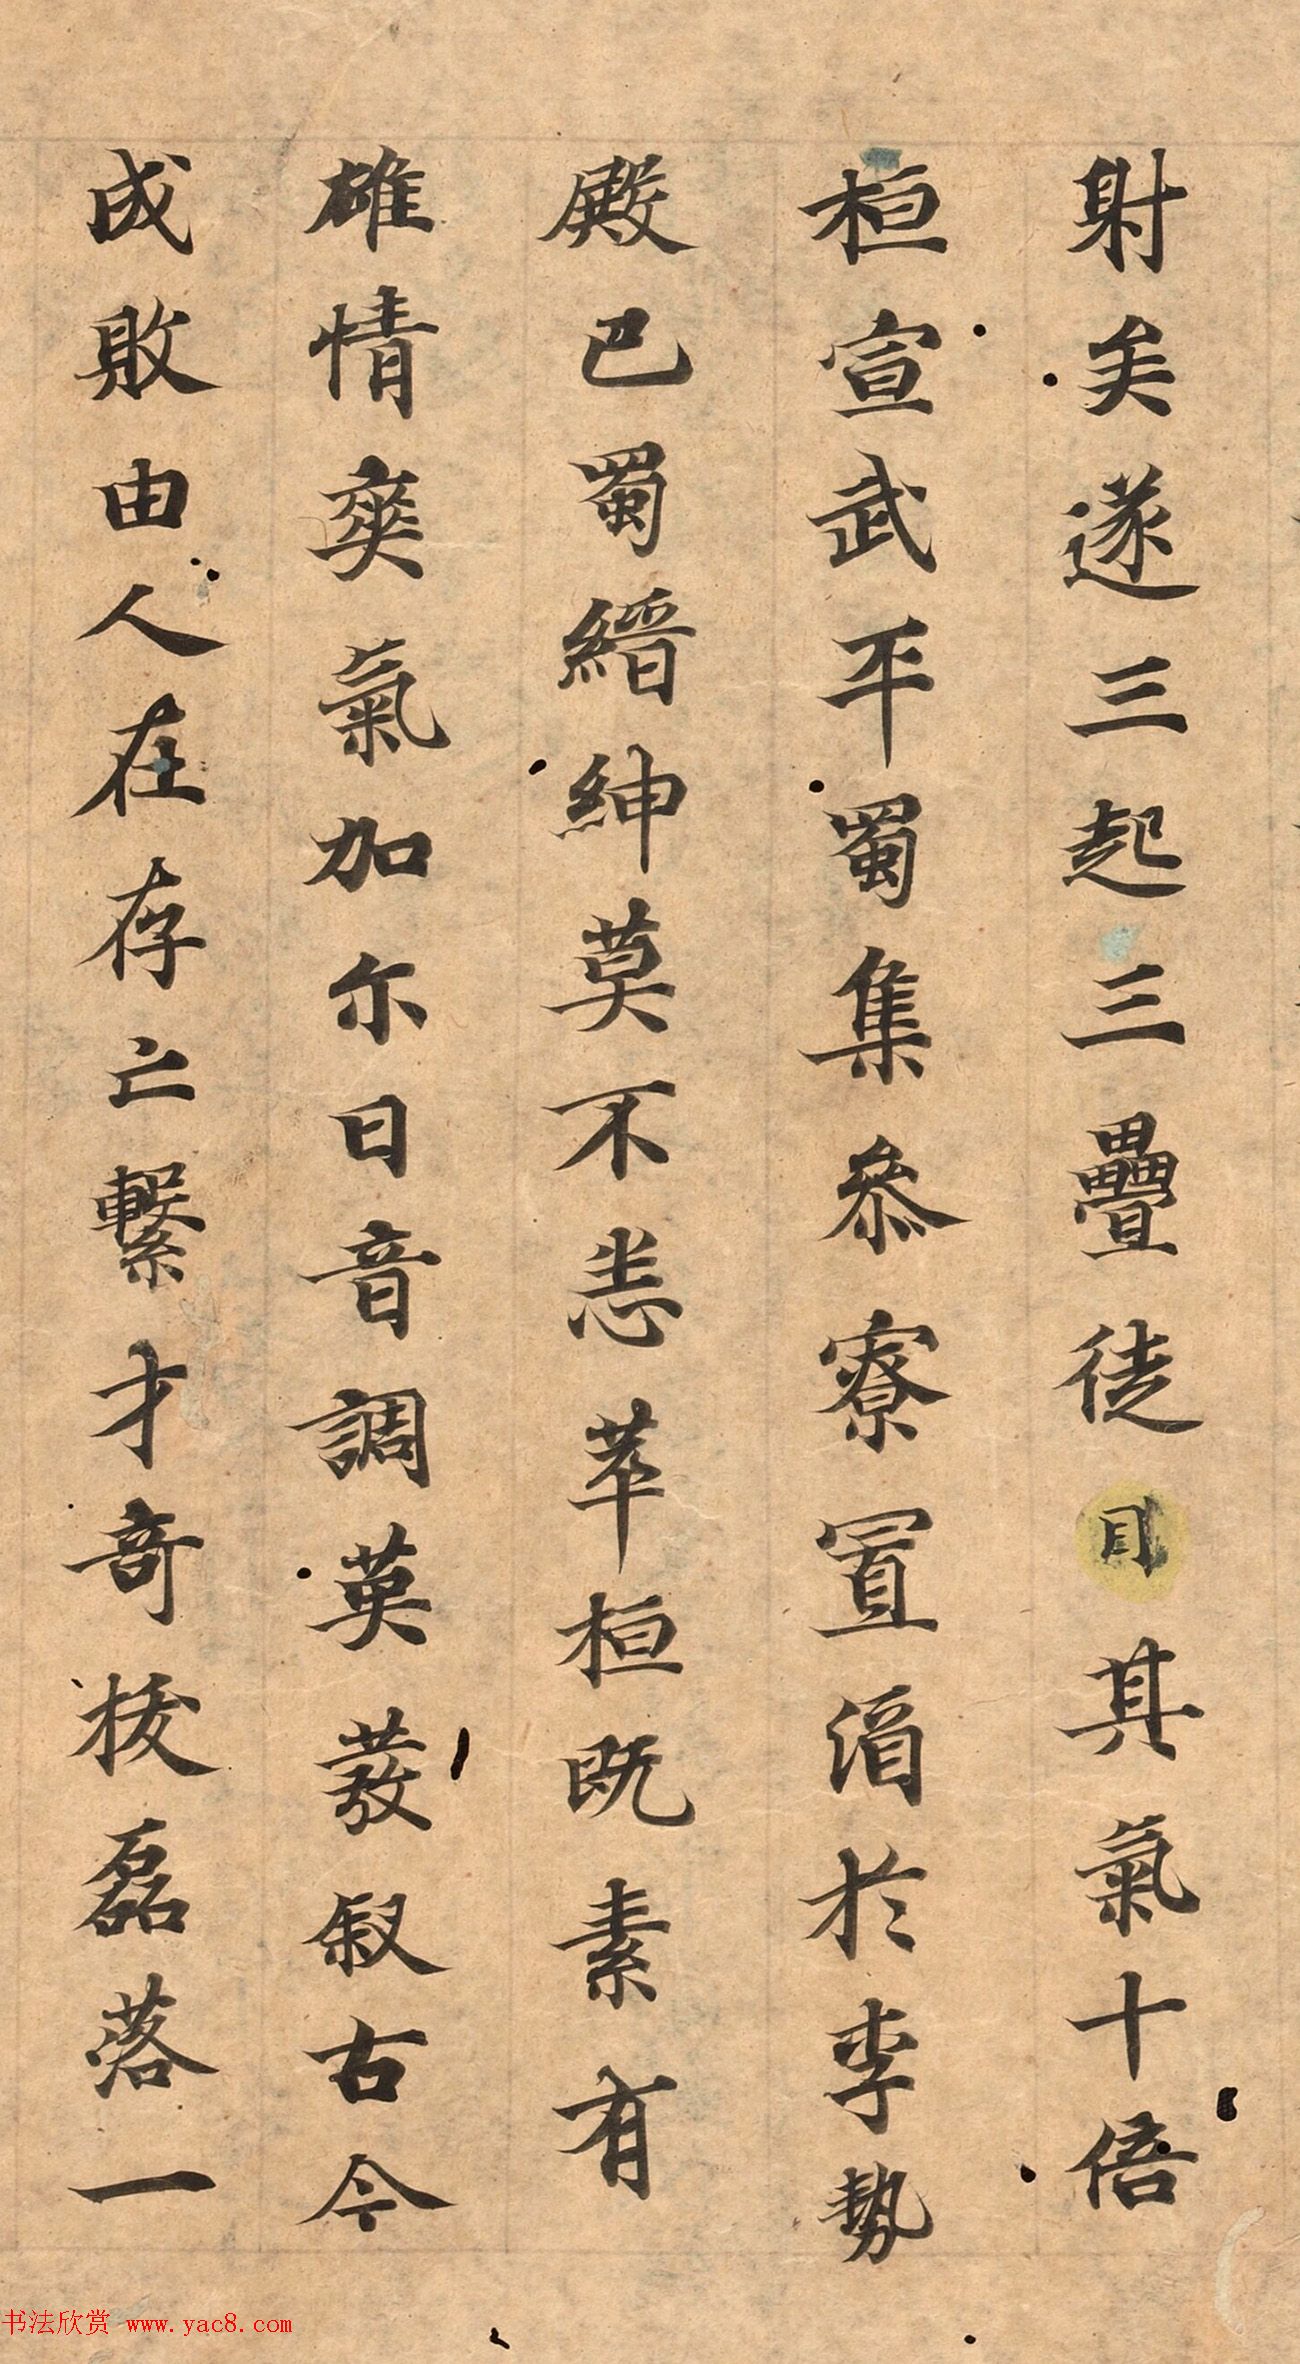 射矣遂三起三疊徒目其氣十倍
桓宣武平蜀集叅寮置酒於李勢
殿巴蜀縉紳莫不恙萃桓既素有
雄情爽氣加尓日音調英發叙古今
成敗由人在存亡繫才竒拔磊落一
书法欣赏 www.yac8.com